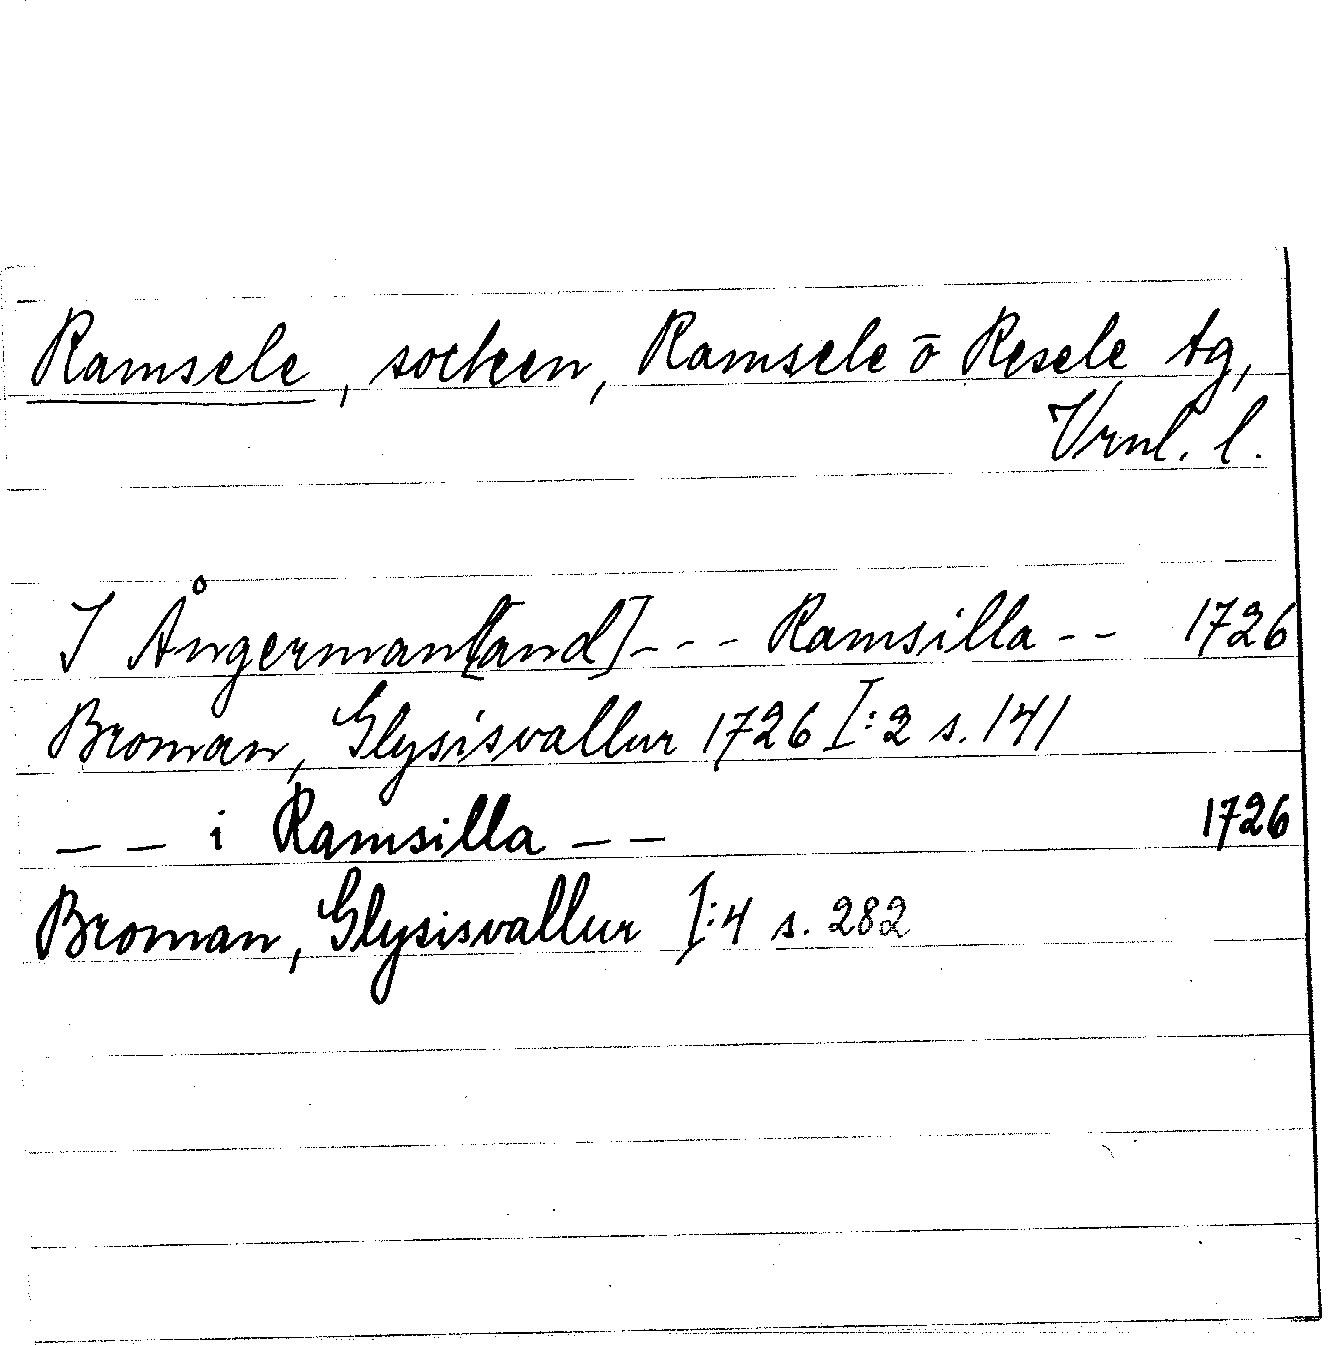 Ramsele, socken, Ramsele ō Resele tg,
Vrnl. l.
I Ångerman[land] - - - Ramsilla - - 1726
Broman, Glysisvallur 1726 I:2 s. 141
— — i Ramsilla — — 1726
Broman, Glysisvallur I:4 s. 282